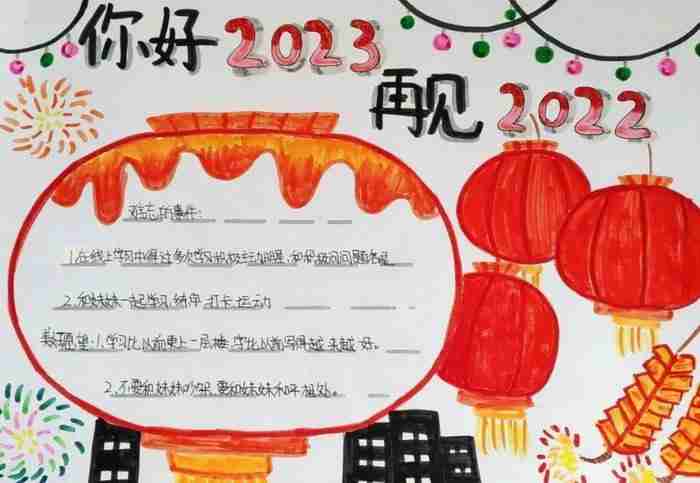 你好2023
再见2022
难忘的事件:
1.在线上学习中得过多次学习积极之,和积极问问题
2.和妹妹一起学习 打卡 运动
愿望:1.学习比以前更上一层楼 字比以前写得越来越好。
2.不要和妹妹吵架,要和妹妹和平相处。